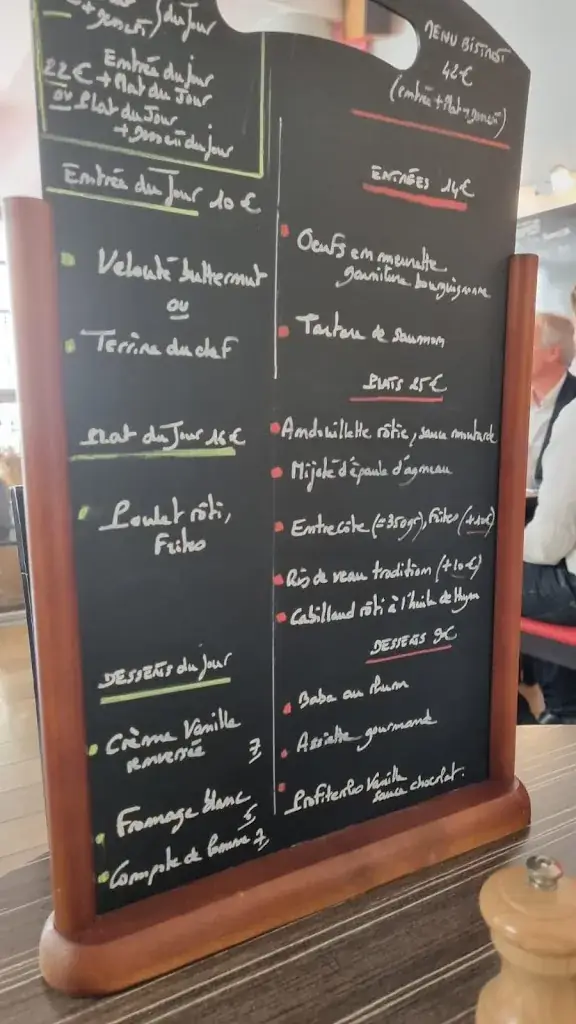 + dessert } du jour
Entrée du jour
22€ + Plat du Jour
ou Plat du Jour
+ dessert du jour
Entrée du Jour 10 €
Velouté butternut
ou
Terrine du chef
Plat du Jour 16 €
Poulet rôti,
Frites
DESSERTS du jour
Crème Vanille
renversée 7
Fromage blanc
6
Compote de Pomme 7
MENU BISTROT
42€
(entrée + Plat + dessert)
ENTRÉES 14€
Oeufs en meurette
garniture bourguignonne
Tartare de Saumon
PLATS 25€
Andouillette rôtie, sauce moutarde
Mijoté d'épaule d'agneau
Entrecôte (≈350gr), Frites (+10€)
Ris de veau tradition (+10€)
Cabillaud rôti à l'huile de thym
DESSERTS 9€
Baba au rhum
Assiette gourmande
Profiteroles Vanille
sauce chocolat.